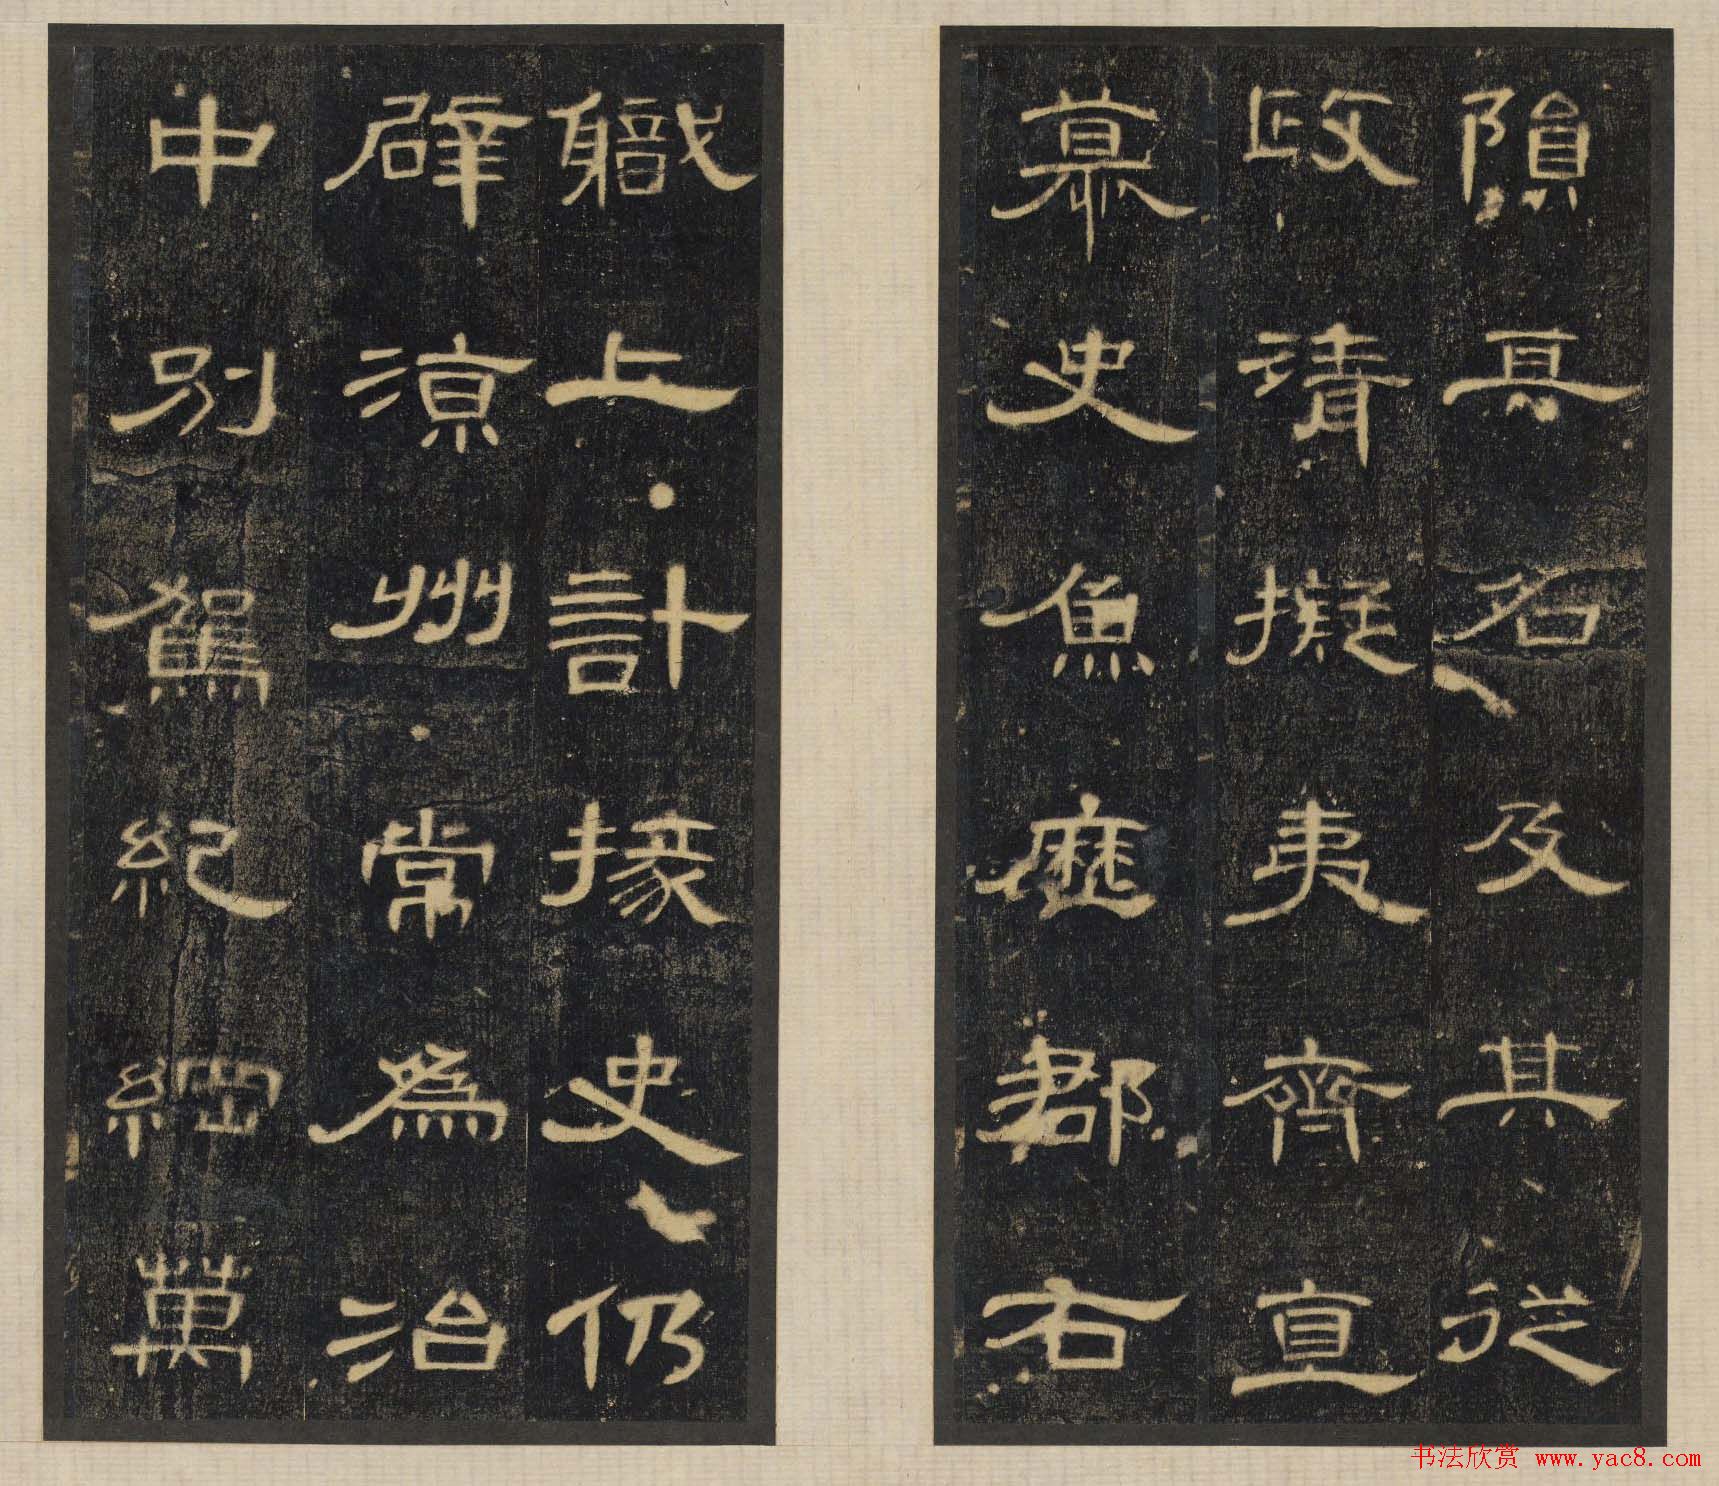 隕其名及其從
政清擬夷齊直
慕史魚歷郡右
職上計掾史仍
辟涼州常為治
中別駕紀綱萬
书法欣赏 www.yac8.com